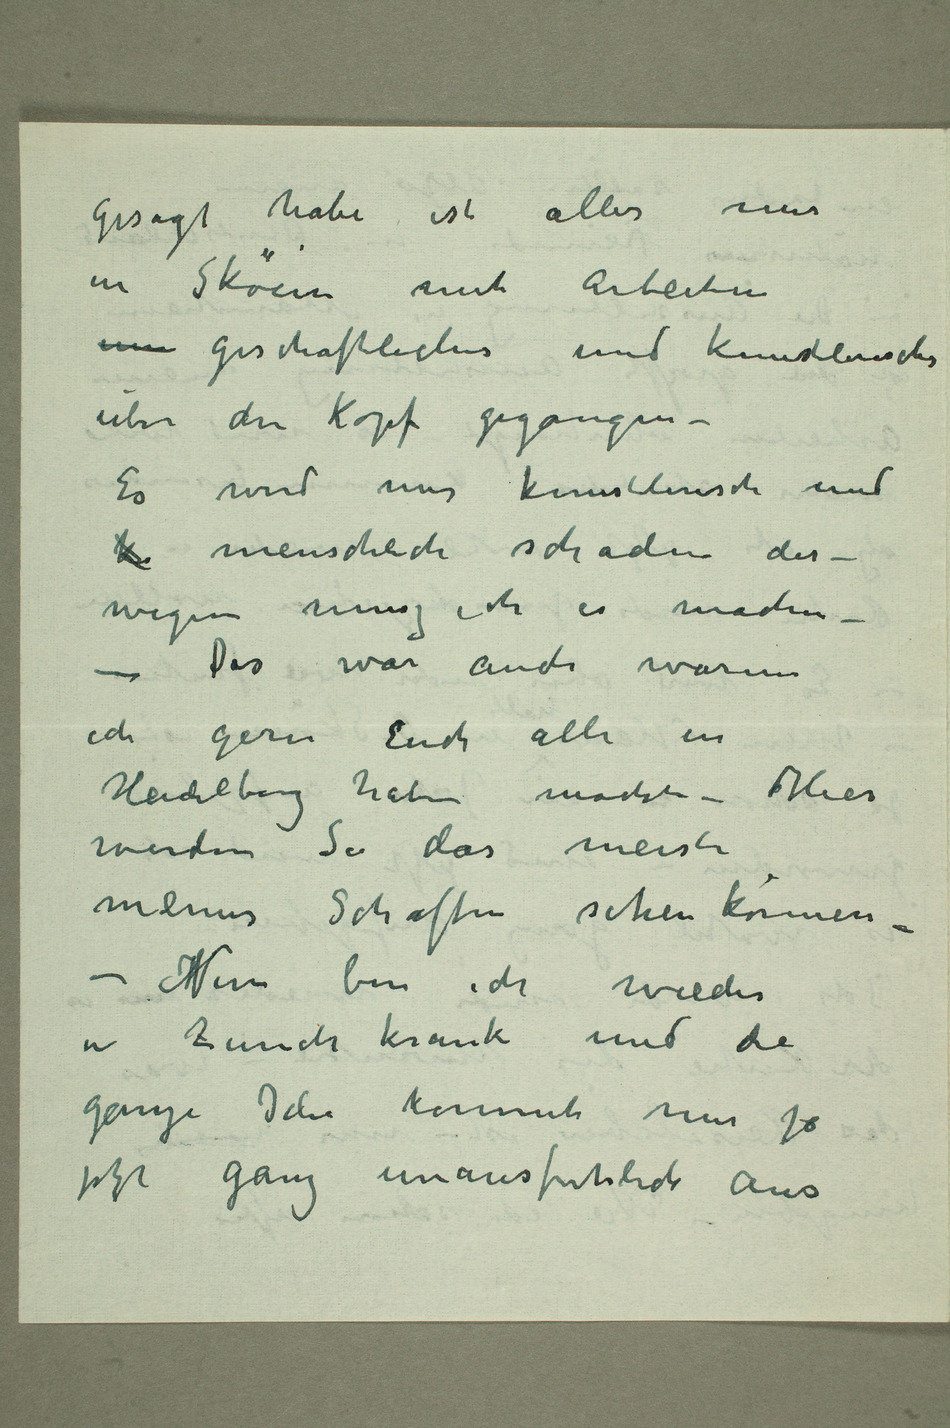 gesagt habe ist alles mir
in Sköien mit Arbeiten
geschäftliches und künstlerisches
über den Kopf gegangen –
Es wird mir künstlerisch und
menschlich schaden des–
wegen musz ich es machen –
– Das war auch warum
ich gern Euch alle in
Heidelberg haben möchte – Hier
werden Sie das meiste
meines Schaffen sehen können –
– Nun bin ich wieder
in Zürich krank und die
ganze Idee kommt mir ja
jetzt ganz unausfürhlich aus